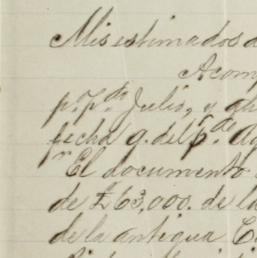 Mis estimados
Acom
p.r p.do Julio, y
fecha 9. del p.do
El documento
de £63,000. de la
de la antigua C